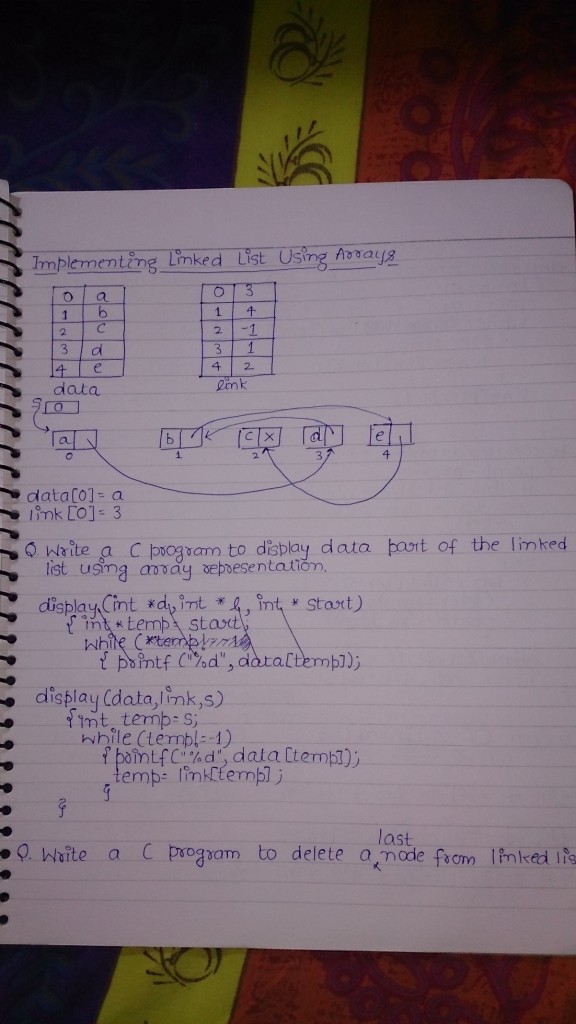 Implementing Linked List Using Arrays
0 a
1 b
2 c
3 d
4 e
data
0 3
1 4
2 -1
3 1
4 2
link
S
0
a b c x d e
0 1 2 3 4
data[0]= a
link[0]= 3
Q. Write a C program to display data part of the linked
list using array representation.
display(int *d, int * l, int * start)
{ int * temp = start;
while (*temp
{ printf ("%d", data[temp]);
display(data,link,s)
{int temp=s;
while (temp!=-1)
{ printf("%d", data[temp]);
temp= link[temp];
}
}
Q. Write a C program to delete a last node from linked lis